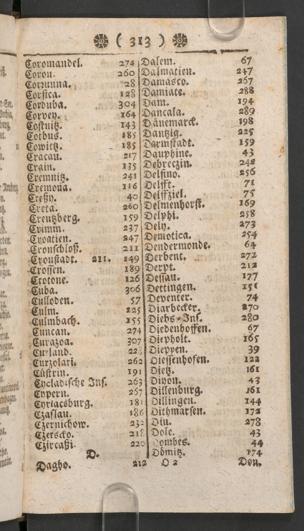 ( 313 )
Coromandel. 274
Coron. 260
Corunna. 28
Corsica. 128
Corduba. 304
Corvey. 164
Costnitz. 143
Cotbus. 185
Cowitz. 185
Cracau. 217
Crain. 135
Cremnitz. 241
Cremona. 116
Creta. 260
Creutzberg. 159
Crimm. 237
Croatien. 247
Cronschloß. 211
Cronstadt. 211. 149
Crossen. 189
Crotone. 126
Cuba. 306
Culloden. 57
Culm. 225
Culmbach. 155
Cuncan. 274
Curazoa. 307
Curland. 22
Curzolari. 262
Cüstrin. 191
Cycladische Ins. 263
Cypern. 267
Cyriacsburg. 181
Czaslau. 186
Czernichow. 232
Czircaßi. 220
D.
Dagho. 212
Dalem. 67
Dalmatien. 247
Damasco. 267
Damiate. 288
Dam. 194
Dancala. 289
Dänemarck. 198
Dantzig. 225
Darmstadt. 159
Dauphine. 43
Debreczin. 242
Delfino. 256
Delfft. 71
Delffziel. 75
Delmenhorst. 169
Delphi. 258
Dely. 273
Demotica. 254
Dendermonde. 64
Derbent. 272
Derpt. 212
Dessau. 177
Dettingen. 151
Deventer. 74
Diarbecker. 270
Diebs-Ins. 280
Diedenhoffen. 67
Diepholt. 165
Dieppen. 39
Diessenhofen. 122
Dietz. 161
Dijon. 43
Dillenburg. 161
Dillingen. 144
Dithmarsen. 172
Diu. 278
Dole. 43
Dombes. 44
Dömitz. 174
O 2 Don.